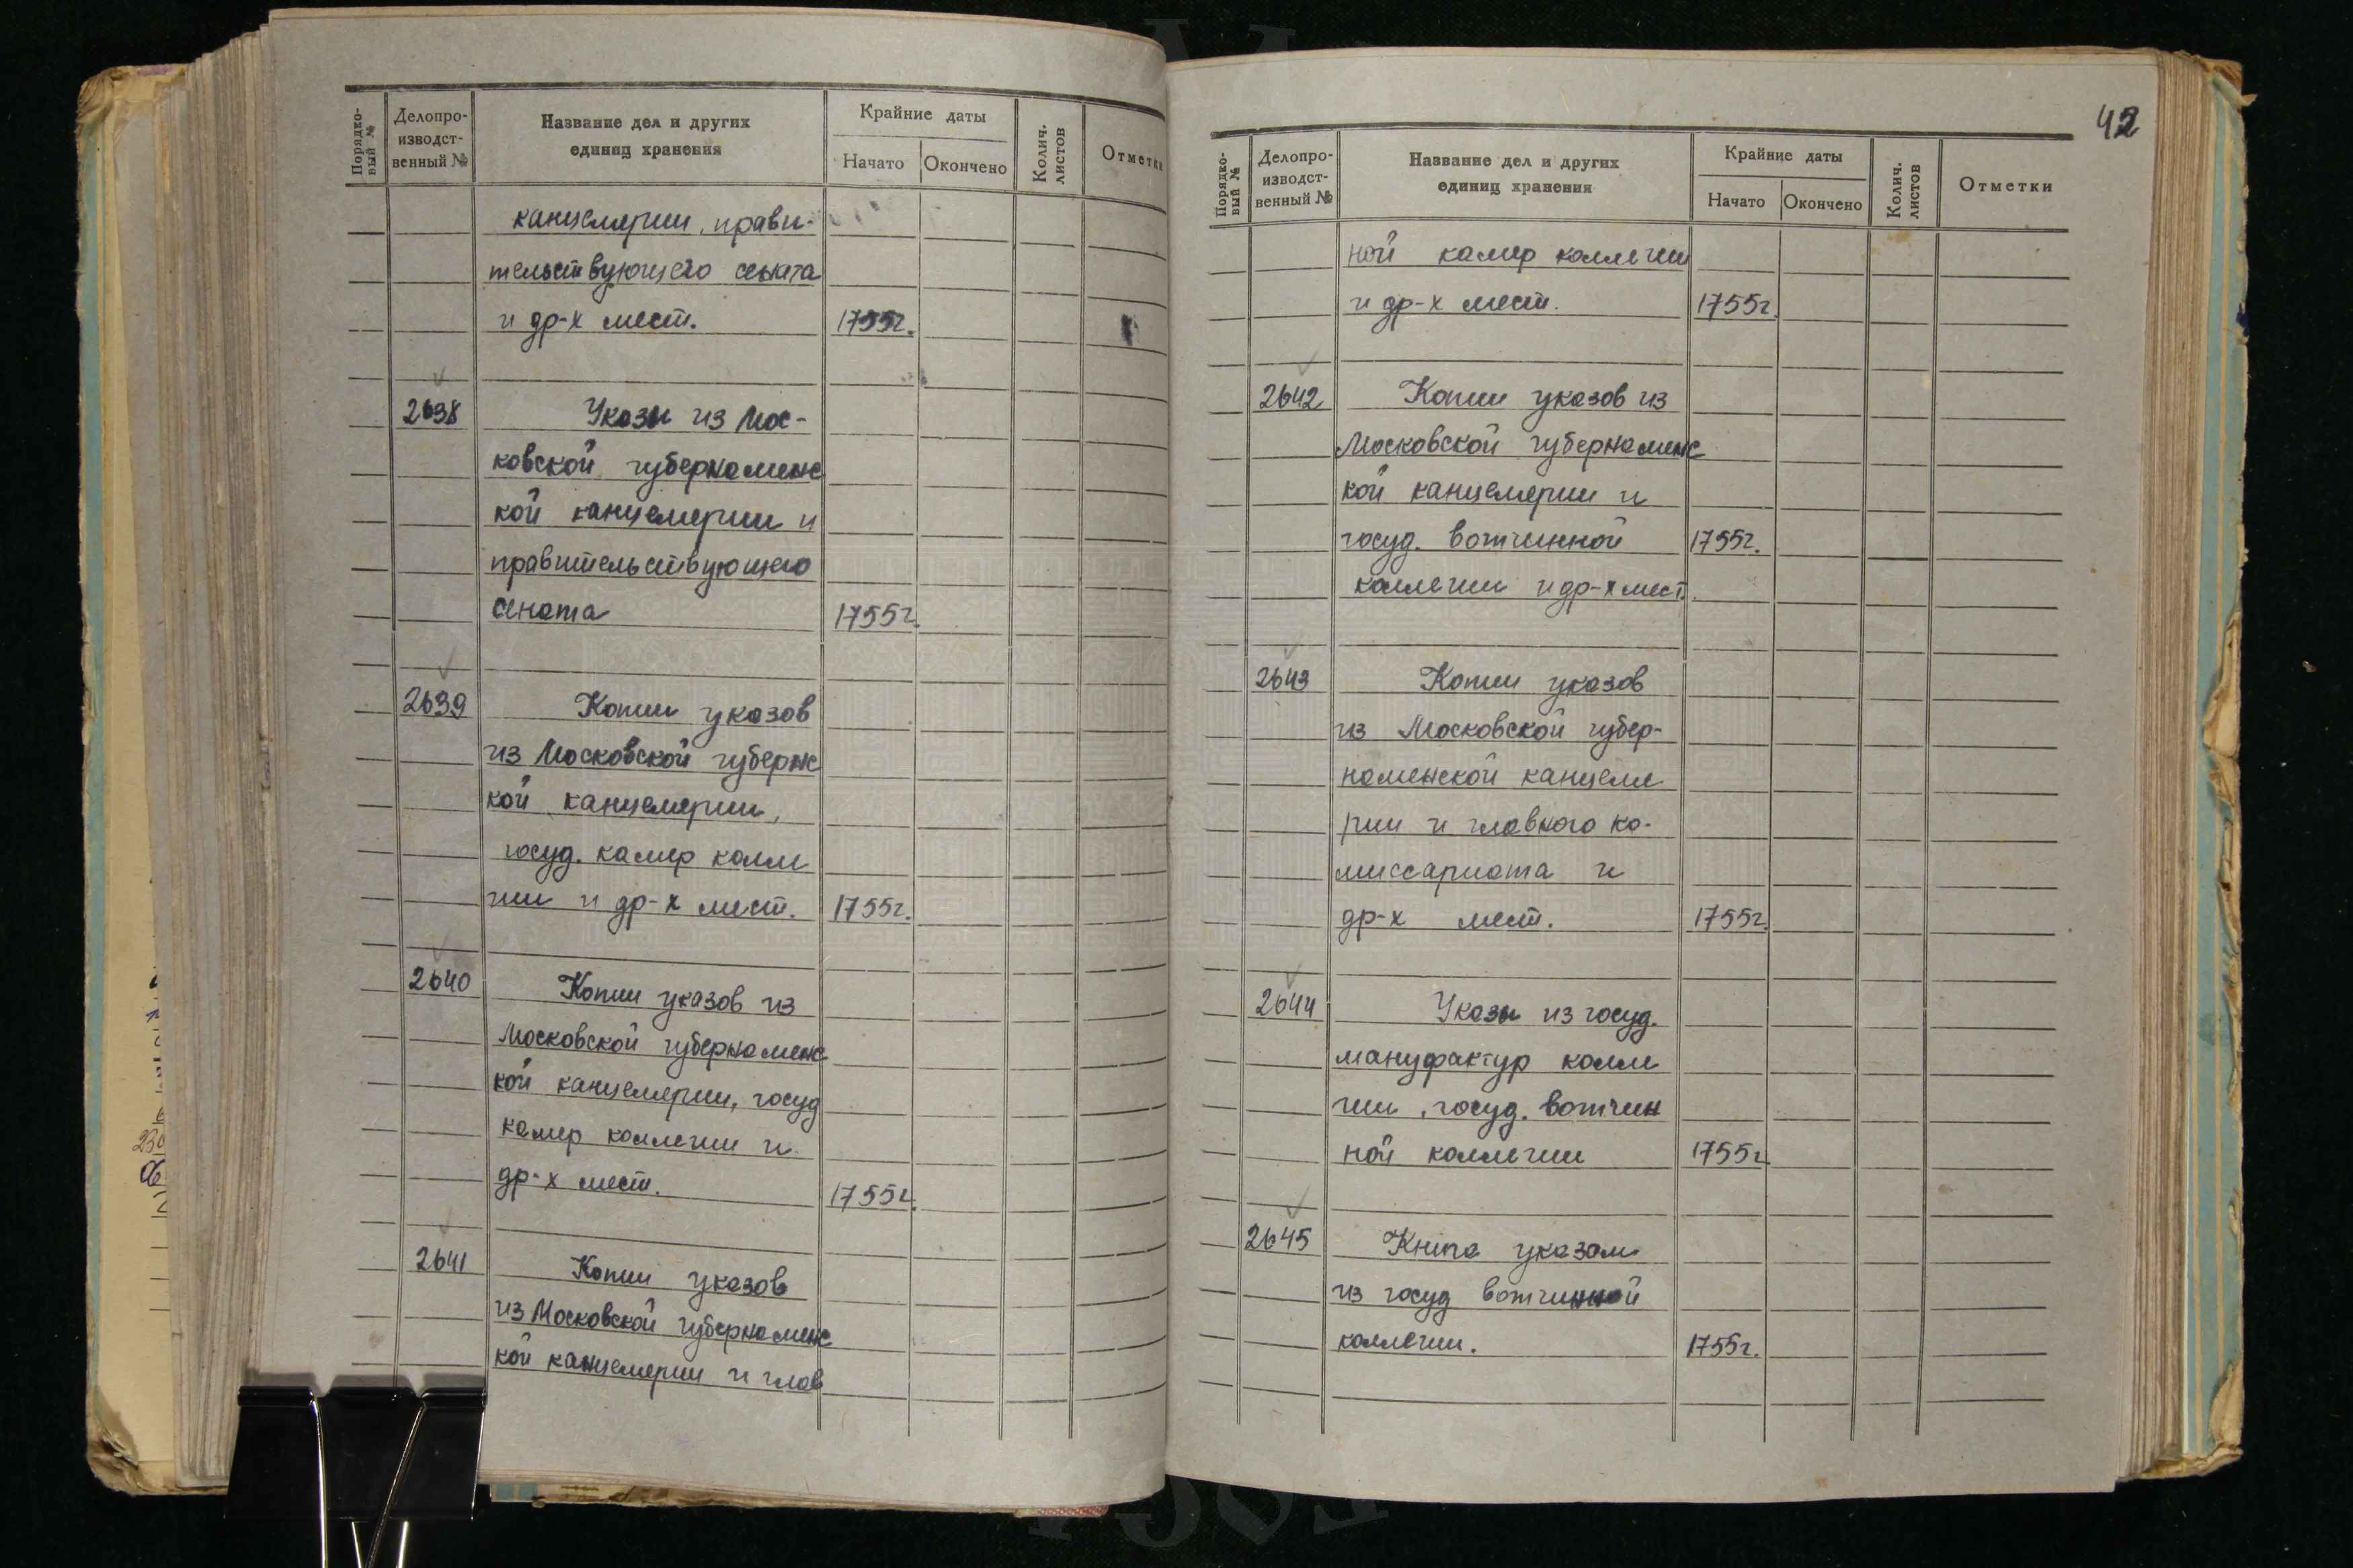 Порядко-
вый №
Делопро-
изводст-
венный №
Название дел и других
единиц хранения
Крайние даты
Начато
Окончено
Колич.
листов
Отметки
канцелярии, прави-
тельствующего сената
и др-х мест. 1755г.
2638 Указы из Мос-
ковской губернаменс
кой канцелярии и
правительствующего
сената 1755г.
2639 Копии указов
из Московской губернс
кой канцелярии,
госуд. камер колле
гии и др-х мест. 1755г.
2640 Копии указов из
Московской губернаменс
кой канцелярии, госуд
камер коллегии и
др-х мест. 1755г.
2641 Копии указов
из Московской губернаменс
кой канцелярии и глав
42
Порядко-
вый №
Делопро-
изводст-
венный №
Название дел и других
единиц хранения
Крайние даты
Начато
Окончено
Колич.
листов
Отметки
ной камер коллегии
и др-х мест. 1755г.
2642 Копии указов из
Московской губернаменс
кой канцелярии и
госуд. вотчинной 1755г.
коллегии и др-х мест.
2643 Копии указов
из Московской губер-
наменской канцеля
рии и главного ко-
миссариата и
др-х мест. 1755г.
2644 Указы из госуд.
мануфактур колле
гии, госуд. вотчин
ной коллегии 1755г.
2645 Книга указам
из госуд вотчинной
коллегии. 1755г.